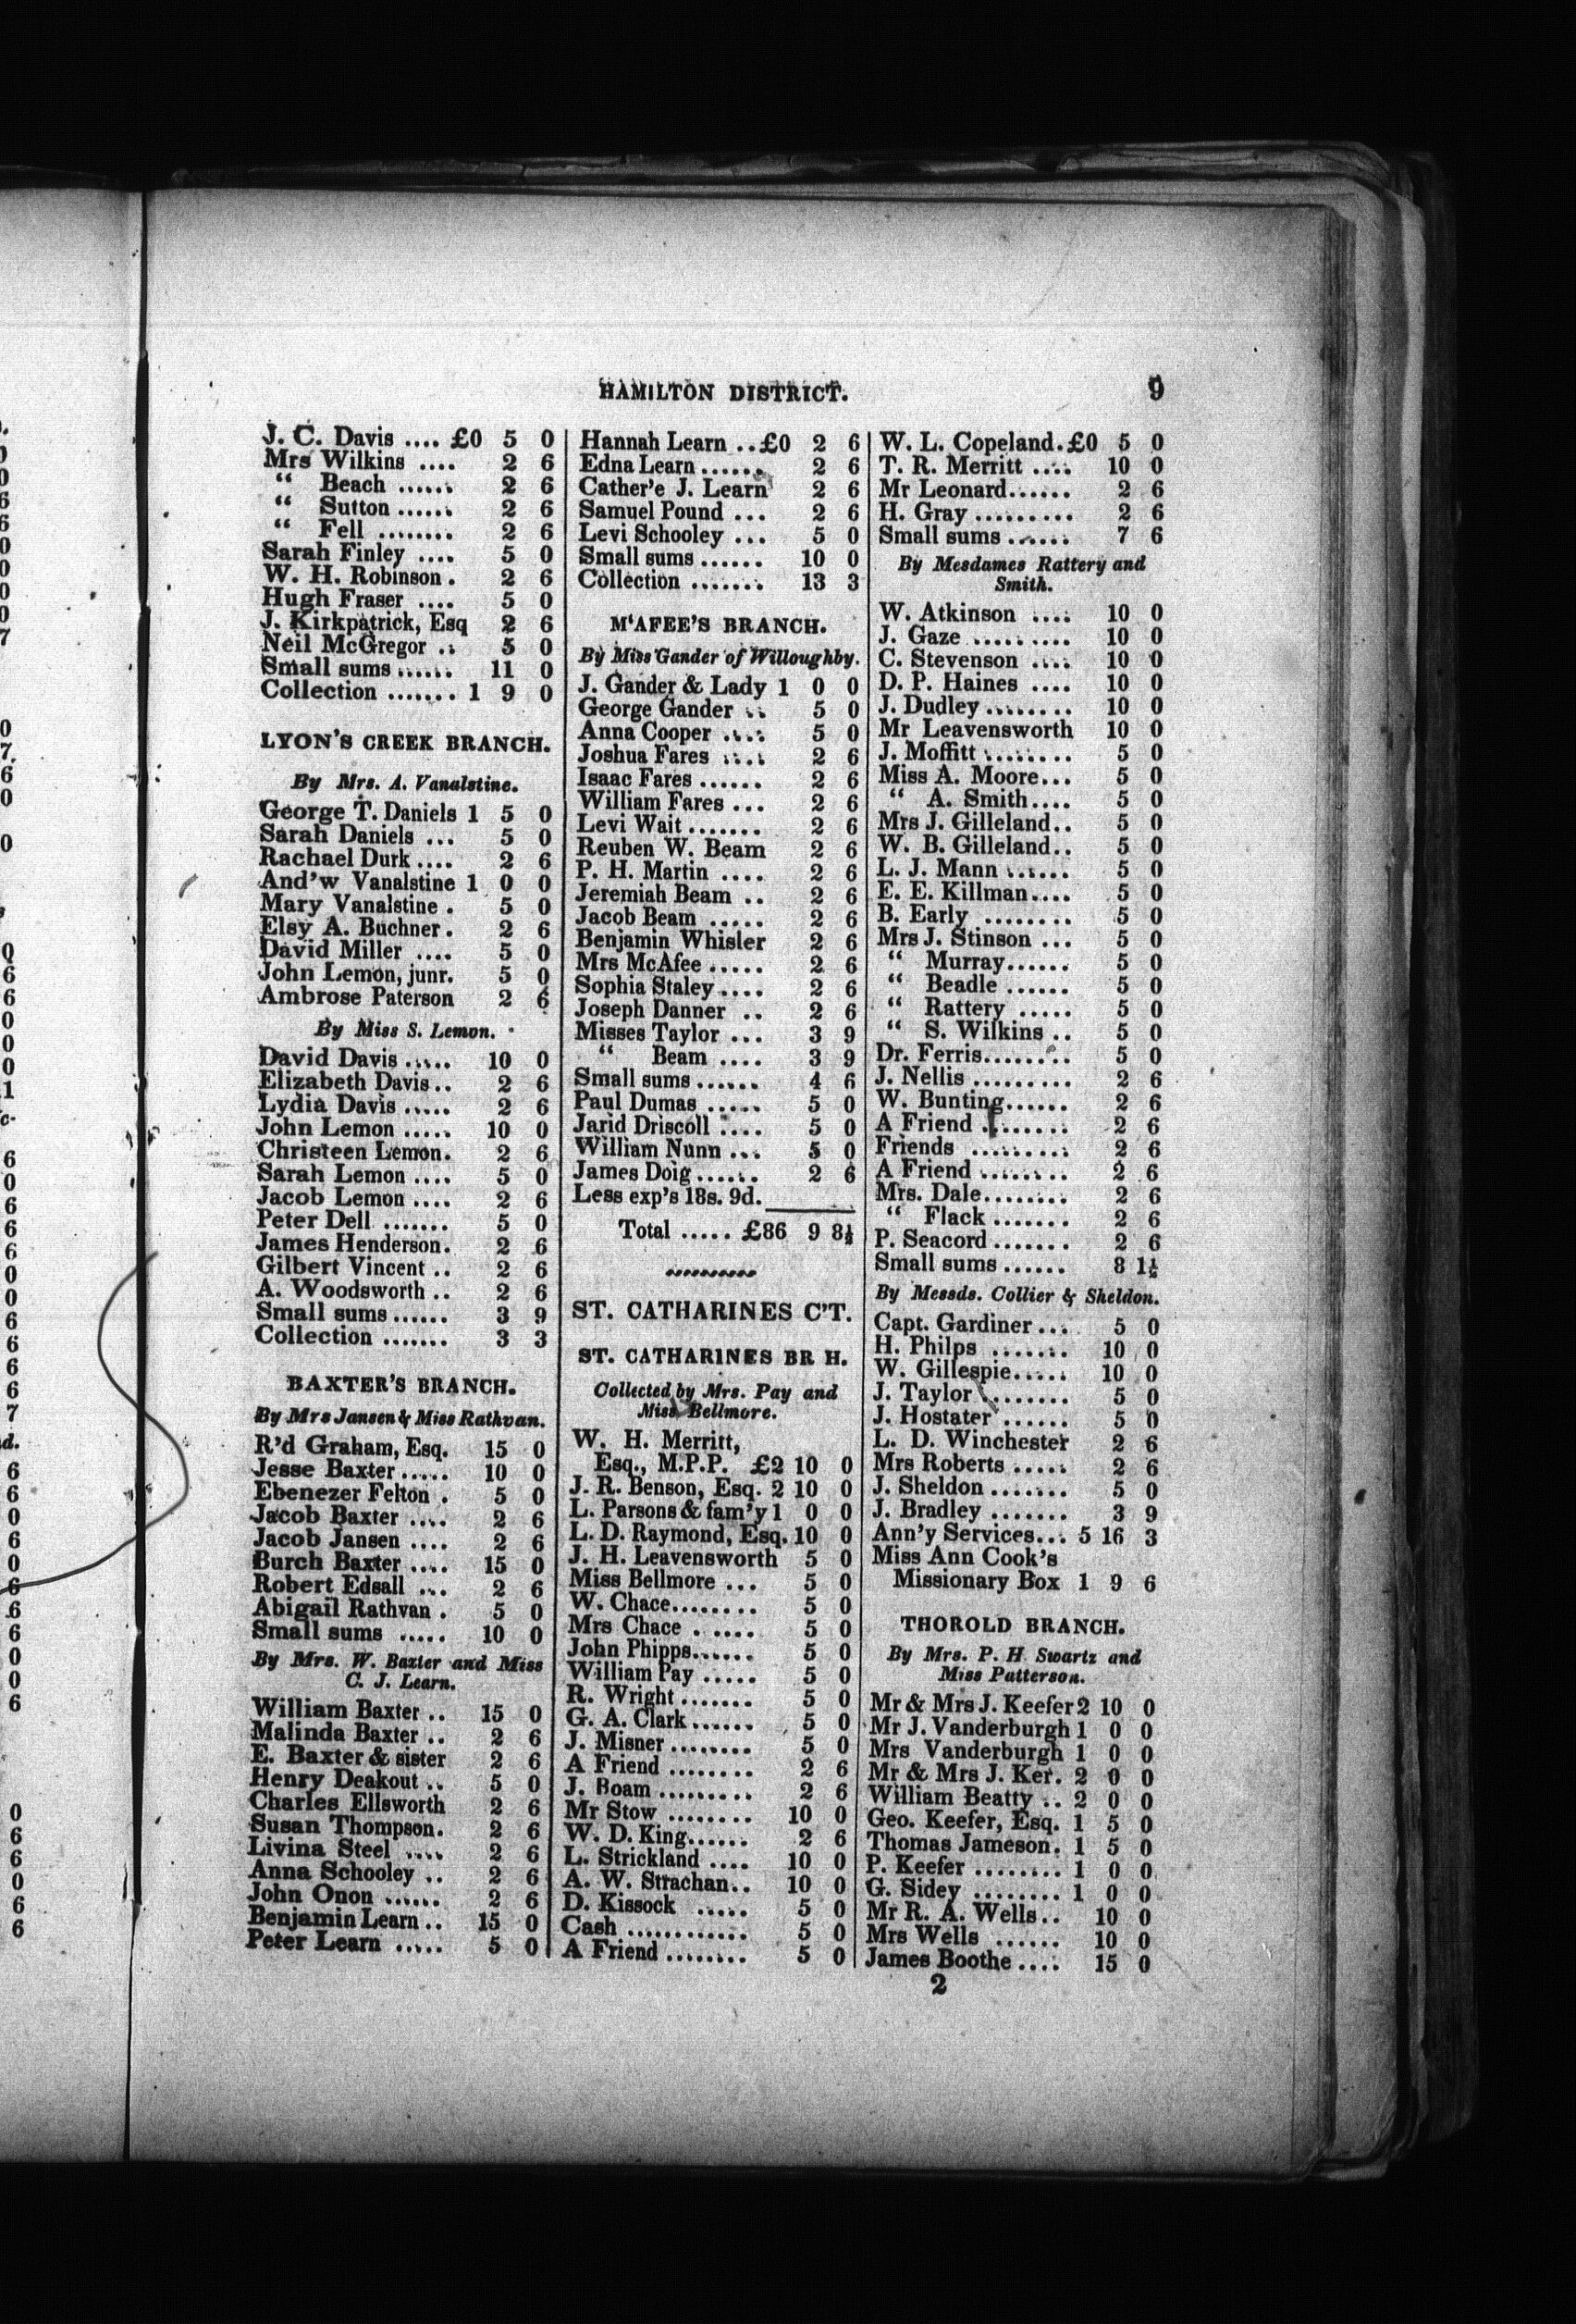 HAMILTON DISTRICT. 9
J. C. Davis .... £0 5 0
Mrs Wilkins .... 2 6
“ Beach ...... 2 6
“ Sutton ...... 2 6
“ Fell ........ 2 6
Sarah Finley .... 5 0
W. H. Robinson . 2 6
Hugh Fraser .... 5 0
J. Kirkpatrick, Esq 2 6
Neil McGregor .. 5 0
Small sums ...... 11 0
Collection ....... 1 9 0
LYON'S CREEK BRANCH.
By Mrs. A. Vanalstine.
George T. Daniels 1 5 0
Sarah Daniels ... 5 0
Rachael Durk .... 2 6
And'w Vanalstine 1 0 0
Mary Vanalstine . 5 0
Elsy A. Buchner . 2 6
David Miller .... 5 0
John Lemon, junr. 5 0
Ambrose Paterson 2 6
By Miss S. Lemon.
David Davis ..... 10 0
Elizabeth Davis .. 2 6
Lydia Davis ..... 2 6
John Lemon ..... 10 0
Christeen Lemon. 2 6
Sarah Lemon .... 5 0
Jacob Lemon .... 2 6
Peter Dell ....... 5 0
James Henderson. 2 6
Gilbert Vincent .. 2 6
A. Woodsworth .. 2 6
Small sums ...... 3 9
Collection ....... 3 3
BAXTER'S BRANCH.
By Mrs Jansen & Miss Rathvan.
R'd Graham, Esq. 15 0
Jesse Baxter ..... 10 0
Ebenezer Felton . 5 0
Jacob Baxter .... 2 6
Jacob Jansen .... 2 6
Burch Baxter .... 15 0
Robert Edsall ... 2 6
Abigail Rathvan . 5 0
Small sums ..... 10 0
By Mrs. W. Baxter and Miss
C. J. Learn.
William Baxter .. 15 0
Malinda Baxter .. 2 6
E. Baxter & sister 2 6
Henry Deakout .. 5 0
Charles Ellsworth 2 6
Susan Thompson. 2 6
Livina Steel .... 2 6
Anna Schooley .. 2 6
John Onon ...... 2 6
Benjamin Learn .. 15 0
Peter Learn ..... 5 0
Hannah Learn .. £0 2 6
Edna Learn ...... 2 6
Cather'e J. Learn 2 6
Samuel Pound ... 2 6
Levi Schooley ... 5 0
Small sums ...... 10 0
Collection ....... 13 3
M‘AFEE'S BRANCH.
By Miss Gander of Willoughby.
J. Gander & Lady 1 0 0
George Gander .. 5 0
Anna Cooper .... 5 0
Joshua Fares .... 2 6
Isaac Fares ...... 2 6
William Fares ... 2 6
Levi Wait ....... 2 6
Reuben W. Beam 2 6
P. H. Martin .... 2 6
Jeremiah Beam .. 2 6
Jacob Beam ..... 2 6
Benjamin Whisler 2 6
Mrs McAfee ..... 2 6
Sophia Staley .... 2 6
Joseph Danner .. 2 6
Misses Taylor ... 3 9
“ Beam .... 3 9
Small sums ...... 4 6
Paul Dumas ..... 5 0
Jarid Driscoll .... 5 0
William Nunn ... 5 0
James Doig ...... 2 6
Less exp's 18s. 9d.
Total ..... £86 9 8½
ST. CATHARINES C'T.
ST. CATHARINES BR H.
Collected by Mrs. Pay and
Miss Bellmore.
W. H. Merritt,
Esq., M.P.P. £2 10 0
J. R. Benson, Esq. 2 10 0
L. Parsons & fam'y 1 0 0
L. D. Raymond, Esq. 10 0
J. H. Leavensworth 5 0
Miss Bellmore ... 5 0
W. Chace ........ 5 0
Mrs Chace . .... 5 0
John Phipps ...... 5 0
William Pay ..... 5 0
R. Wright ....... 5 0
G. A. Clark ...... 5 0
J. Misner ........ 5 0
A Friend ........ 2 6
J. Boam ......... 2 6
Mr Stow ........ 10 0
W. D. King ...... 2 6
L. Strickland .... 10 0
A. W. Strachan .. 10 0
D. Kissock ..... 5 0
Cash ............ 5 0
A Friend ........ 5 0
W. L. Copeland . £0 5 0
T. R. Merritt .... 10 0
Mr Leonard ...... 2 6
H. Gray ......... 2 6
Small sums ...... 7 6
By Mesdames Rattery and
Smith.
W. Atkinson .... 10 0
J. Gaze ......... 10 0
C. Stevenson .... 10 0
D. P. Haines .... 10 0
J. Dudley ........ 10 0
Mr Leavensworth 10 0
J. Moffitt ........ 5 0
Miss A. Moore ... 5 0
“ A. Smith .... 5 0
Mrs J. Gilleland .. 5 0
W. B. Gilleland .. 5 0
L. J. Mann ...... 5 0
E. E. Killman .... 5 0
B. Early ........ 5 0
Mrs J. Stinson ... 5 0
“ Murray ...... 5 0
“ Beadle ...... 5 0
“ Rattery ..... 5 0
“ S. Wilkins .. 5 0
Dr. Ferris ........ 5 0
J. Nellis ......... 2 6
W. Bunting ...... 2 6
A Friend ........ 2 6
Friends ......... 2 6
A Friend ........ 2 6
Mrs. Dale ........ 2 6
“ Flack ....... 2 6
P. Seacord ....... 2 6
Small sums ...... 8 1½
By Messds. Collier & Sheldon.
Capt. Gardiner ... 5 0
H. Philps ....... 10 0
W. Gillespie ..... 10 0
J. Taylor ........ 5 0
J. Hostater ...... 5 0
L. D. Winchester 2 6
Mrs Roberts ..... 2 6
J. Sheldon ....... 5 0
J. Bradley ....... 3 9
Ann'y Services ... 5 16 3
Miss Ann Cook's
Missionary Box 1 9 6
THOROLD BRANCH.
By Mrs. P. H Swartz and
Miss Patterson.
Mr & Mrs J. Keefer 2 10 0
Mr J. Vanderburgh 1 0 0
Mrs Vanderburgh 1 0 0
Mr & Mrs J. Ker. 2 0 0
William Beatty .. 2 0 0
Geo. Keefer, Esq. 1 5 0
Thomas Jameson. 1 5 0
P. Keefer ........ 1 0 0
G. Sidey ........ 1 0 0
Mr R. A. Wells .. 10 0
Mrs Wells ...... 10 0
James Boothe .... 15 0
2